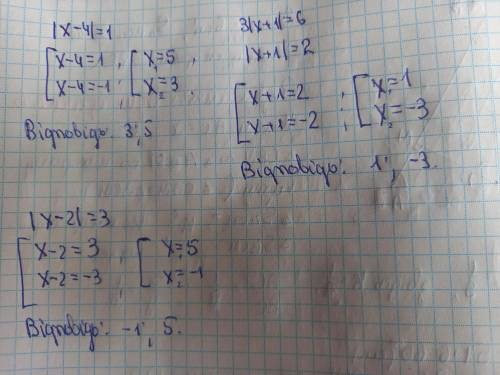 |x-4|=1
[x-4=1 ; [x₁=5
[x-4=-1 ; [x₂=3
Відповідь: 3; 5
3|x+1|=6
|x+1|=2
[x+1=2 ; [x₁=1
[x+1=-2 ; [x₂=-3
Відповідь: 1; -3.
|x-2|=3
[x-2=3 , [x₁=5
[x-2=-3 [x₂=-1
Відповідь: -1; 5.